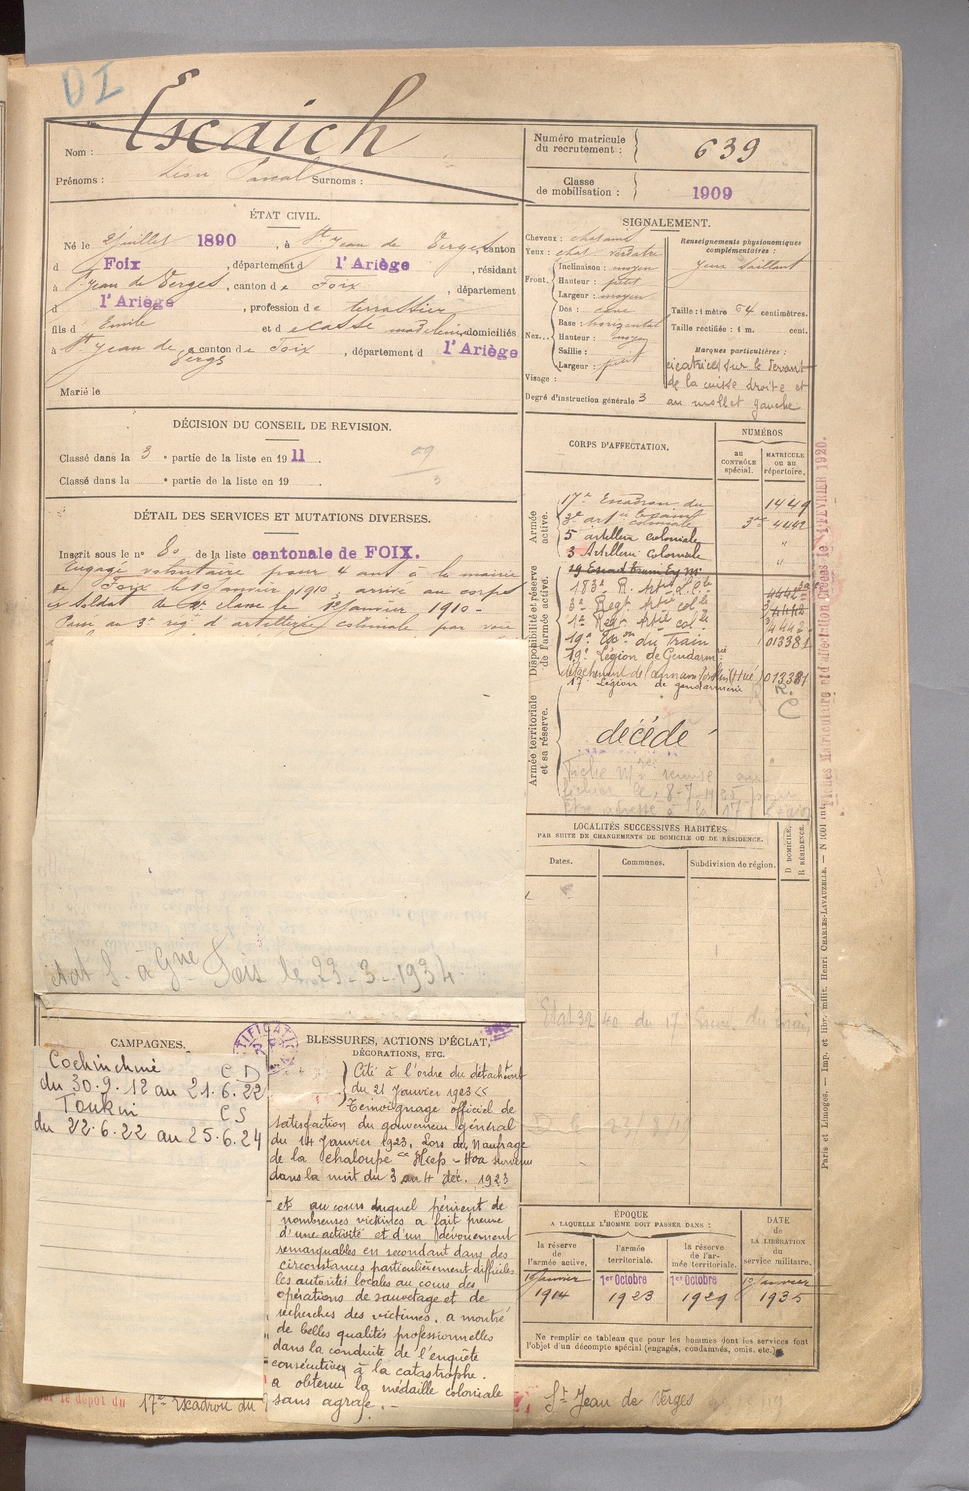 D I
Nom : Escaich
Prénoms : Léon Pascal Surnoms :
Numéro matricule du recrutement : 639
Classe de mobilisation : 1909
ÉTAT CIVIL.
Né le 2 juillet 1890, à St Jean de Verges, canton
d Foix, département d l'Ariège, résidant
à St Jean de Verges, canton de Foix, département
d l'Ariège, profession de terrassier
fils d Emile et de domiciliés
à St Jean de Verges canton de Foix, département d l'Ariège
Marié le
DÉCISION DU CONSEIL DE REVISION.
Classé dans la 3e partie de la liste en 1911. 09
Classé dans la e partie de la liste en 19 . 3
DÉTAIL DES SERVICES ET MUTATIONS DIVERSES.
Inscrit sous le no 80 de la liste cantonale de FOIX.
Engagé volontaire pour 4 ans à la mairie
de Foix le 10 janvier 1910, arrivé au corps
Soldat de 2e classe le janvier 1910 -
Passé au 3e rég. d'artillerie coloniale par voie
Foix le 23-3-1934
SIGNALEMENT.
Cheveux :
Yeux : verdatre
Front. Inclinaison : moyen
Hauteur : petit
Largeur : moyen
Nez... Dos :
Base : horizontal
Hauteur : moyen
Saillie :
Largeur : petit
Visage :
Degré d'instruction générale 3
Renseignements physionomiques complémentaires :
Yeux saillant
Taille : 1 mètre 64 centimètres.
Taille rectifiée : 1 m. cent.
Marques particulières :
cicatrices sur le devant
de la cuisse droite et
au mollet gauche
CORPS D'AFFECTATION.
NUMÉROS
AU CONTRÔLE spécial.
MATRICULE OU AU répertoire.
Armée active.
17e Escadron du train 1449
3e art ie coloniale 4442
5 artillerie coloniale "
3 Artillerie Coloniale "
Disponibilité et réserve de l'armée active.
19 Escad Train Eq. M.
183e R. Art ie L. Cle
3e Regt Art ie col le 4442
1e Regt Art ie col le 4442
19e Esc on du Train 013381
19e Légion de Gendarm ie
(Hué) 013381
17e Légion de gendarmerie
Armée territoriale et sa réserve.
décédé
Fiche
8-7-1925 pour
LOCALITÉS SUCCESSIVES HABITÉES
PAR SUITE DE CHANGEMENTS DE DOMICILE OU DE RÉSIDENCE.
Dates.
Communes.
Subdivision de région.
D DOMICILE.
R RÉSIDENCE.
CAMPAGNES.
Cochinchine C D
du 30.9.12 au 21.6.22
Tonkin C S
du 22.6.22 au 25.6.24
BLESSURES, ACTIONS D'ÉCLAT, DÉCORATIONS, ETC.
Cité à l'ordre du détachement
du 21 Janvier 1923 <<
Témoignage officiel de
satisfaction du gouverneur général
du 14 Janvier 1923, Lors du Naufrage
de la chaloupe Hiep-Hoa survenu
dans la nuit du 3 au 4 déc. 1923
et au cours duquel périrent de
nombreuses victimes a fait preuve
d'une activité et d'un dévouement
remarquables en secondant dans des
circonstances particulièrement difficiles
les autorités locales au cours des
opérations de sauvetage et de
recherches des victimes, a montré
de belles qualités professionnelles
dans la conduite de l'enquête
consécutive à la catastrophe.
a obtenu la médaille coloniale
sans agrafe. -
ÉPOQUE
A LAQUELLE L'HOMME DOIT PASSER DANS :
la réserve de l'armée active.
l'armée territoriale.
la réserve de l'armée territoriale.
DATE de LA LIBÉRATION du service militaire.
10 janvier 1914
1er Octobre 1923
1er Octobre 1929
10 janvier 1935
Ne remplir ce tableau que pour les hommes dont les services font
l'objet d'un décompte spécial (engagés, condamnés, omis, etc.)
par le dépôt du 17e Escadron du
St Jean de Verges
Paris et Limoges. — Imp. et libr. milit. Henri CHARLES-LAVAUZELLE. —